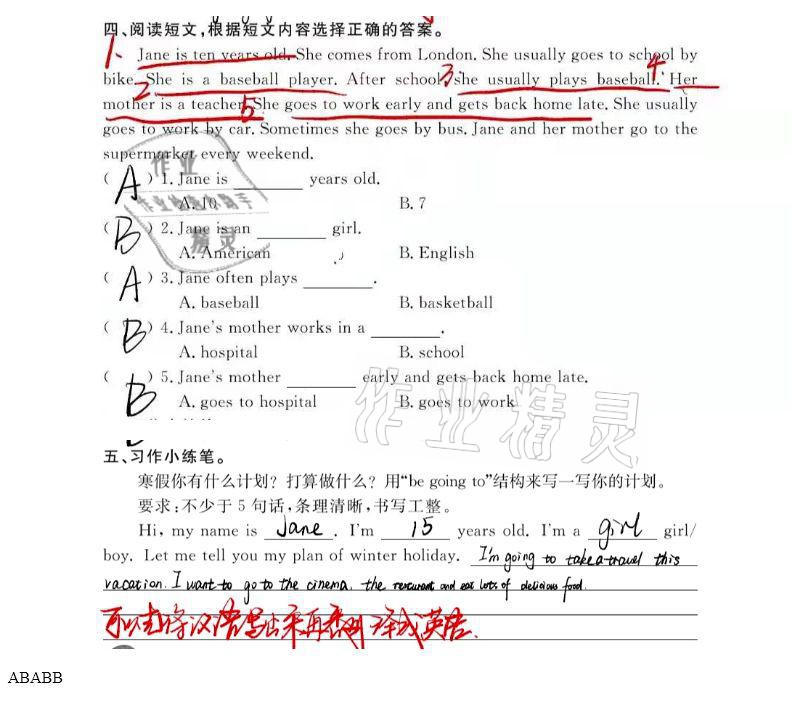 四、阅读短文,根据短文内容选择正确的答案。
1. Jane is ten years old. She comes from London. She usually goes to school by
bike. She is a baseball player. After school, she usually plays baseball. Her
2 3. 4
mother is a teacher. She goes to work early and gets back home late. She usually
5
goes to work by car. Sometimes she goes by bus. Jane and her mother go to the
supermarket every weekend.
( A ) 1. Jane is ________ years old.
A. 10 B. 7
( B ) 2. Jane is an ________ girl.
A. American B. English
( A ) 3. Jane often plays ________.
A. baseball B. basketball
( B ) 4. Jane's mother works in a ________.
A. hospital B. school
( B ) 5. Jane's mother ________ early and gets back home late.
A. goes to hospital B. goes to work
作业精灵
五、习作小练笔。
寒假你有什么计划? 打算做什么? 用“be going to”结构来写一写你的计划。
要求:不少于 5 句话,条理清晰,书写工整。
Hi, my name is Jane. I'm 15 years old. I'm a girl girl/
boy. Let me tell you my plan of winter holiday. I'm going to take a travel this
vacation. I want to go to the cinema, the and eat lots of delicious food.
可以先将汉语写出来再翻译成英语.
ABABB